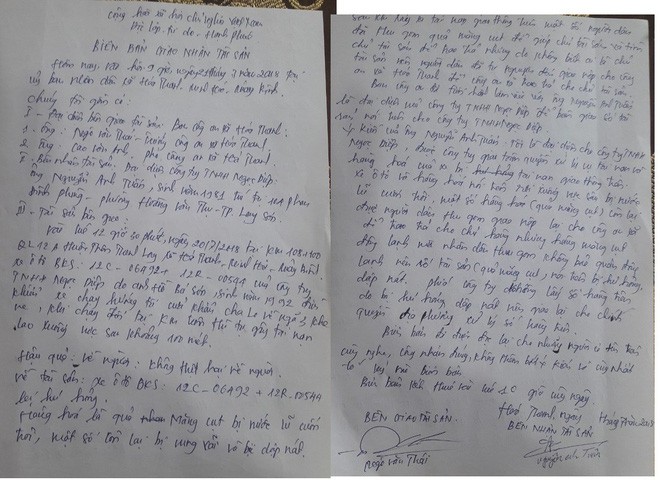 Cộng hoà xã hội chủ nghĩa Việt Nam
Độc lập - tự do - hạnh phúc
BIÊN BẢN GIAO NHẬN TÀI SẢN
Hôm nay, vào hồi 9 giờ, ngày 21 tháng 7 năm 2018 tại
uỷ ban nhân dân xã Hoá Thanh, Minh Hoá, Quảng Bình.
Chúng tôi gồm có:
I - Đại diện bên giao tài sản: Ban công an xã Hoá Thanh.
1. Ông: Ngô Văn Thái - Trưởng công an xã Hoá Thanh.
2. Ông: Cao Văn Anh. Phó công an xã Hoá Thanh.
II - Bên nhận tài sản: Đại diện công ty TNHH Ngọc Diệp.
Ông Nguyễn Anh Tuấn, sinh năm 1981 trú tại
Đình Phùng - phường Hoàng Văn Thụ - TP. Lạng Sơn.
III - Tài sản bàn giao:
Vào lúc 12 giờ 30 phút, ngày 20/7/2018 tại Km 108+100
QL 12A thuộc thôn Thanh Long xã Hoá Thanh, Minh Hoá, Quảng Bình
xe ô tô BKS: 12C-06492 + 12R-00544 của công ty
TNHH Ngọc Diệp do anh sinh năm 1992 điều
khiển xe chạy hướng từ cửa khẩu Cha Lo về ngã 3 Khe
Ve, khi chạy đến tại Km trên thì tự gây tai nạn
lao xuống vực sâu khoảng 100 mét.
Hậu quả: về người: không thiệt hại về người.
về tài sản: xe ô tô BKS: 12C-06492 + 12R-00544
bị hư hỏng.
Hàng hoá là quả măng cụt bị nước lũ cuốn
trôi, một số còn lại bị vung vãi và bị dập nát.
Sau khi xảy ra tai nạn giao thông trên một số người dân
đã thu gom quả măng cụt để giúp chủ tài sản
chủ tài sản để hoàn trả nhưng do không biết ai là chủ
tài sản nên người dân đã tự nguyện đến giao nộp cho công
an xã Hoá Thanh để công an xã hoàn trả cho chủ tài sản.
Ban công an đã tiến hành làm việc với ông Nguyễn Anh Tuấn
là đại diện của công ty TNHH Ngọc Diệp để bàn giao số tài
sản nói trên cho công ty TNHH Ngọc Diệp.
Ý kiến của ông Nguyễn Anh Tuấn: Tôi là đại diện cho công ty TNHH
Ngọc Diệp, được công ty giao toàn quyền xử lý vụ tai nạn
hàng hoá của xe bị hư hỏng tai nạn giao thông
xe ô tô và hàng hoá rơi xuống vực sâu bị nước
lũ cuốn trôi, một số hàng hoá (quả măng cụt) còn lại
được người dân thu gom giao nộp lại cho công an xã
để hoàn trả cho chủ hàng nhưng hàng măng cụt
đây lành mà nhân dân thu gom không bảo quản đông
lạnh nên số tài sản (quả măng cụt) nói trên bị hư hỏng,
dập nát. phía công ty không lấy số hàng trên
do bị hư hỏng dập nát nên giao lại cho chính
quyền địa phương xử lý số hàng trên.
Biên bản đã đọc lại cho những người có tên trên
cùng nghe, công nhận đúng, không thêm bớt ý kiến và cùng nhất
trí ký vào biên bản.
Biên bản kết thúc vào lúc 10 giờ cùng ngày.
Hoá Thanh, ngày tháng 7 năm 2018
BÊN GIAO TÀI SẢN
BÊN NHẬN TÀI SẢN
Ngô Văn Thái
Nguyễn Anh Tuấn